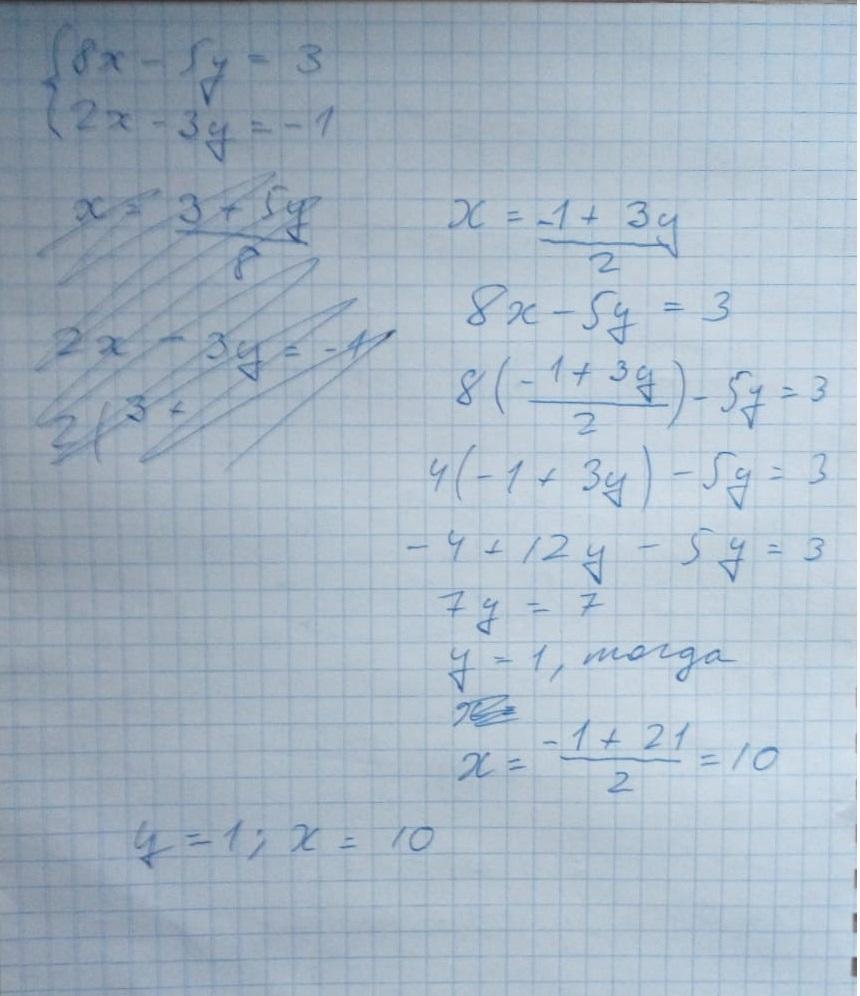 8x - 5y = 3
2x - 3y = -1
x = 3 + 5y / 8
2x - 3y = -1
2(3 +
x = -1 + 3y / 2
8x - 5y = 3
8(-1 + 3y / 2) - 5y = 3
4(-1 + 3y) - 5y = 3
-4 + 12y - 5y = 3
7y = 7
y = 1, тогда
x =
x = -1 + 21 / 2 = 10
y = 1; x = 10